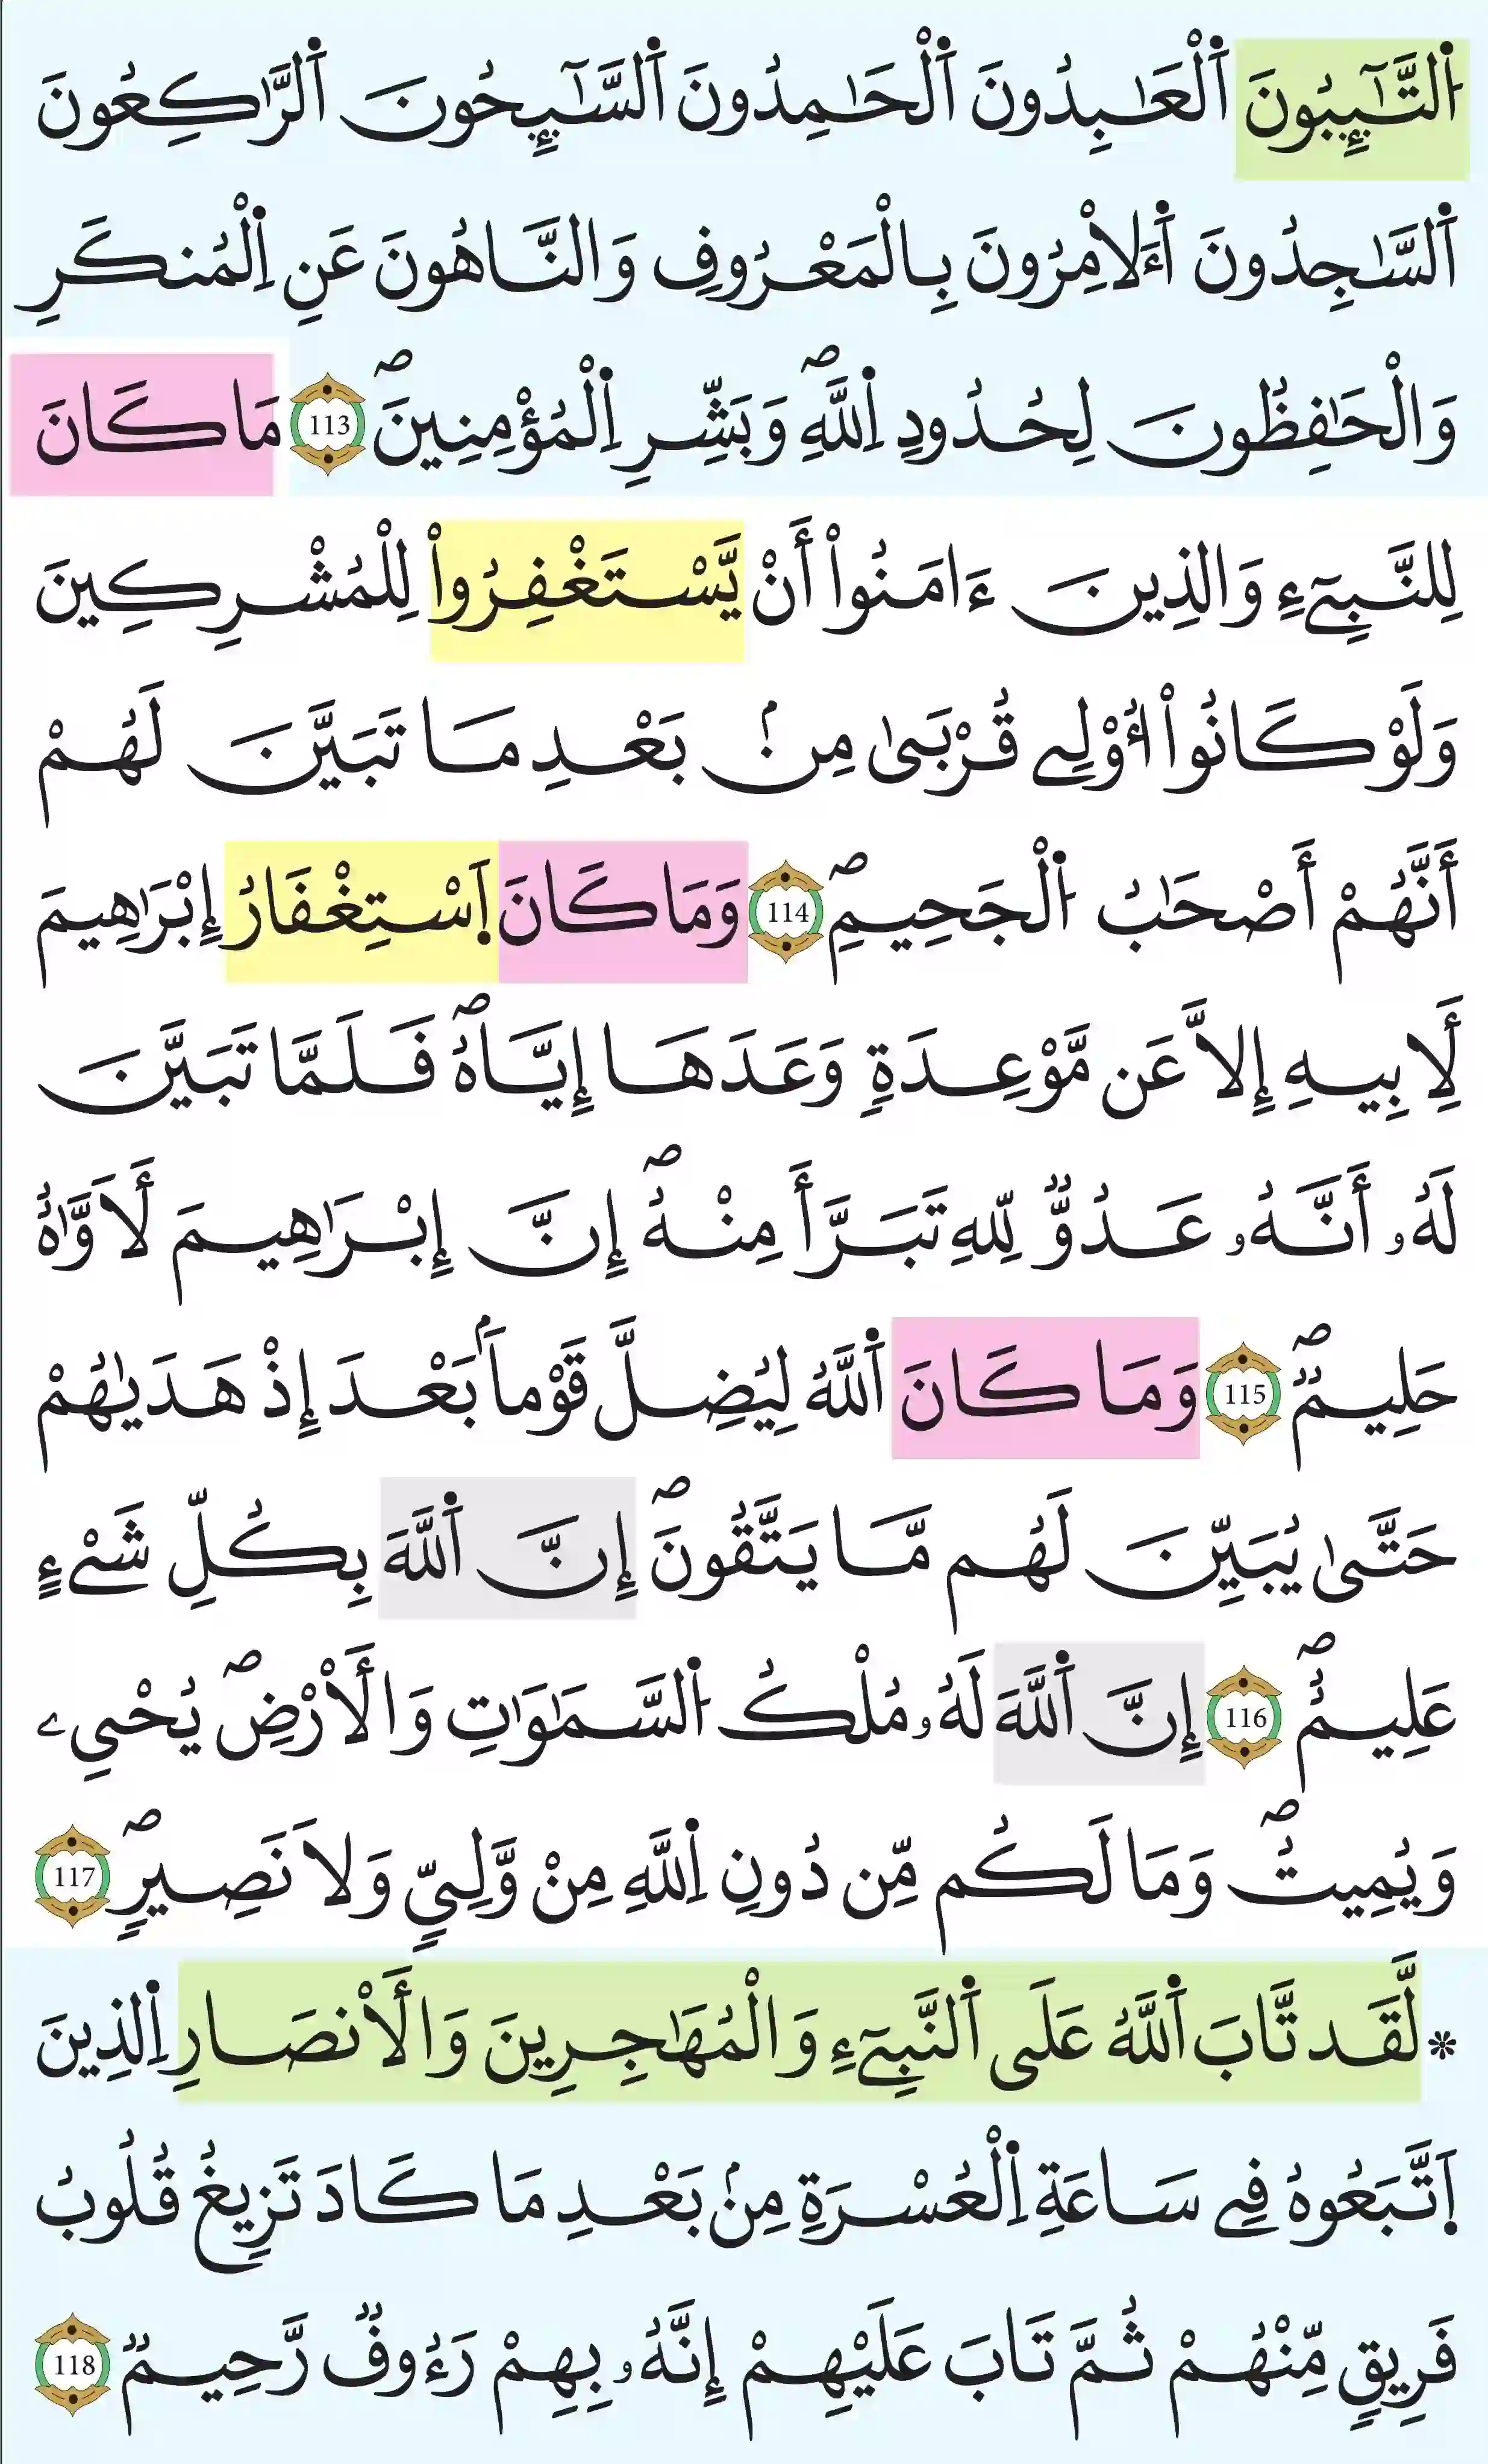 اَ۬لتَّٰٓئِبُونَ اَ۬لْعَٰبِدُونَ اَ۬لْحَٰمِدُونَ اَ۬لسَّٰٓئِحُونَ اَ۬لرَّٰكِعُونَ
اَ۬لسَّٰجِدُونَ اَ۬ءَلَامِرُونَ بِالْمَعْرُوفِ وَالنَّاهُونَ عَنِ اِ۬لْمُنكَرِ
وَالْحَٰفِظُونَ لِحُدُودِ اِ۬للَّهِۖ وَبَشِّرِ اِ۬لْمُؤْمِنِينَۖ 113 مَا كَانَ
لِلنَّبِےٓءِ وَالذِينَ ءَامَنُواْ أَنْ يَّسْتَغْفِرُواْ لِلْمُشْرِكِينَ
وَلَوْ كَانُواْ أُوْلِے قُرْبَىٰ مِنۢ بَعْدِ مَا تَبَيَّنَ لَهُمْ
أَنَّهُمْ أَصْحَٰبُ اُ۬لْجَحِيمِۖ 114 وَمَا كَانَ اَ۪سْتِغْفَارُ إِبْرَٰهِيمَ
لَأِبِيهِ إِلَّا عَن مَّوْعِدَةٖ وَعَدَهَا إِيَّاهُۖ فَلَمَّا تَبَيَّنَ
لَهُۥ أَنَّهُۥ عَدُوّٞ لِلهِ تَبَرَّأَ مِنْهُۖ إِنَّ إِبْرَٰهِيمَ لَأَوَّٰهٌ
حَلِيمٞۖ 115 وَمَا كَانَ اَ۬للَّهُ لِيُضِلَّ قَوْماَۢ بَعْدَ إِذْ هَدَىٰهُمْ
حَتَّىٰ يُبَيِّنَ لَهُم مَّا يَتَّقُونَۖ إِنَّ اَ۬للَّهَ بِكُلِّ شَےْءٍ
عَلِيمٌۖ 116 إِنَّ اَ۬للَّهَ لَهُۥ مُلْكُ اُ۬لسَّمَٰوَٰتِ وَالْأَرْضِۖ يُحْيِۦ
وَيُمِيتُۖ وَمَا لَكُم مِّن دُونِ اِ۬للَّهِ مِنْ وَّلِيّٖ وَلَا نَصِيرٖۖ 117
* لَّقَد تَّابَ اَ۬للَّهُ عَلَى اَ۬لنَّبِےٓءِ وَالْمُهَٰجِرِينَ وَالْأَنصَارِ اِ۬لذِينَ
اَ۪تَّبَعُوهُ فِے سَاعَةِ اِ۬لْعُسْرَةِ مِنۢ بَعْدِ مَا كَادَ تَزِيغُ قُلُوبُ
فَرِيقٖ مِّنْهُمْ ثُمَّ تَابَ عَلَيْهِمْ إِنَّهُۥ بِهِمْ رَءُوفٞ رَّحِيمٞ 118